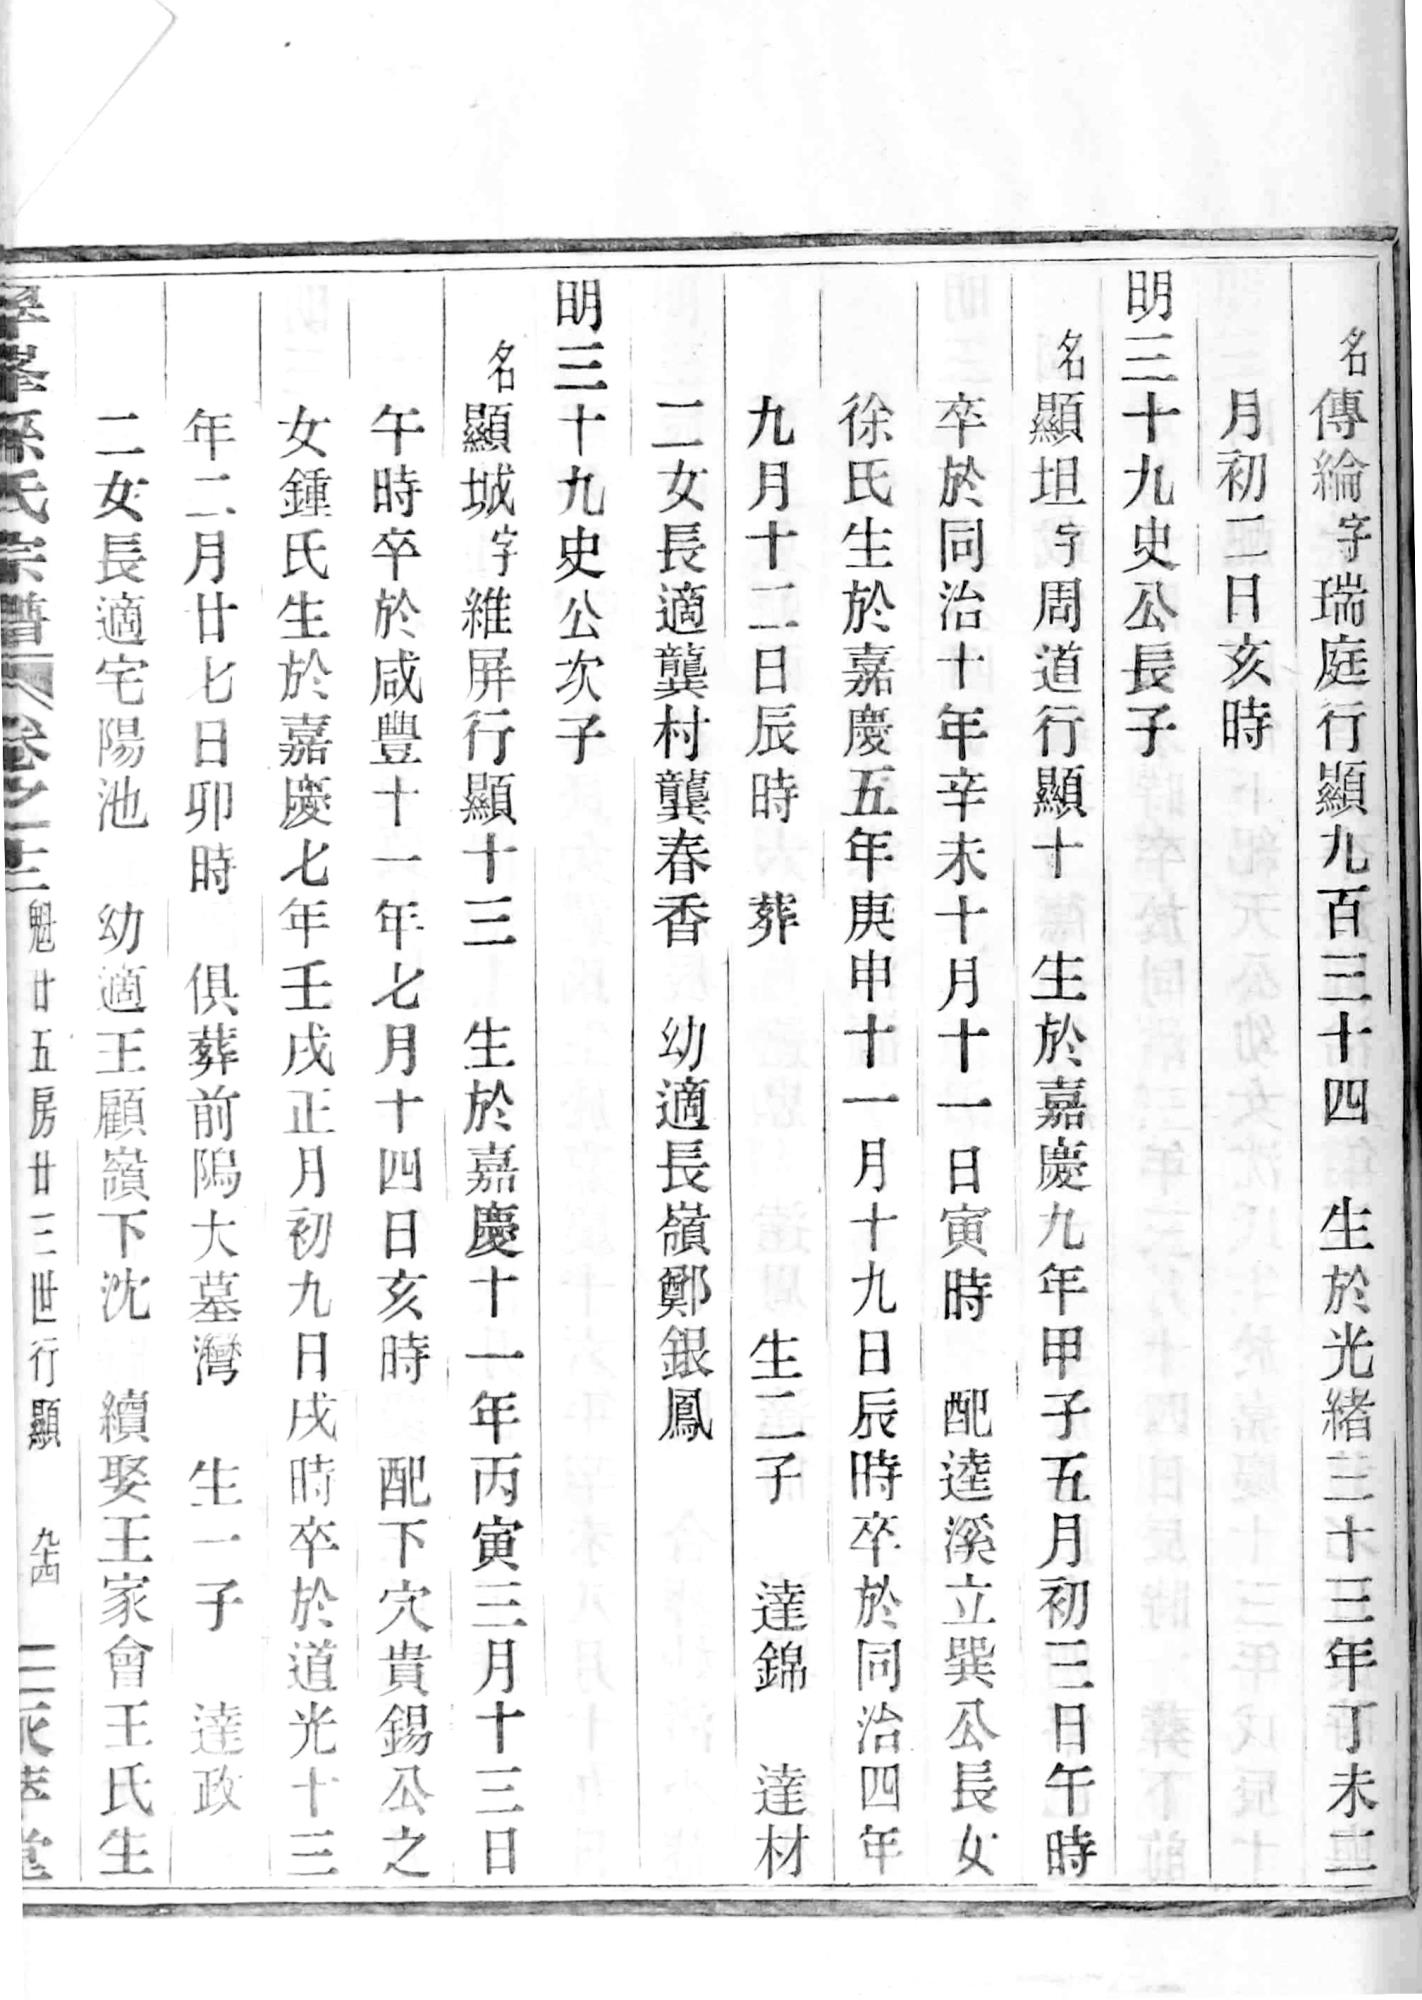 名傳綸字瑞庭行顯九百三十四　生於光緒三十三年丁未二
月初二日亥時
明三十九史公長子
名顯坦字周道行顯十　生於嘉慶九年甲子五月初三日午時
卒於同治十年辛未十月十一日寅時　配逵溪立巽公長女
徐氏生於嘉慶五年庚申十一月十九日辰時卒於同治四年
九月十二日辰時　葬　　生二子　達錦　達材
二女長適龔村龔春香　幼適長嶺鄭銀鳳
明三十九史公次子
名顯城字維屏行顯十三　生於嘉慶十一年丙寅三月十三日
午時卒於咸豐十一年七月十四日亥時　配下穴貴錫公之
女鍾氏生於嘉慶七年壬戌正月初九日戌時卒於道光十三
年二月廿七日卯時　俱葬前隖大墓灣　生一子　達政
二女長適宅陽池　幼適王顧嶺下沈　續娶王家會王氏生
孫氏宗譜　卷之十三　魁廿五房廿三世行顯　九十四　堂